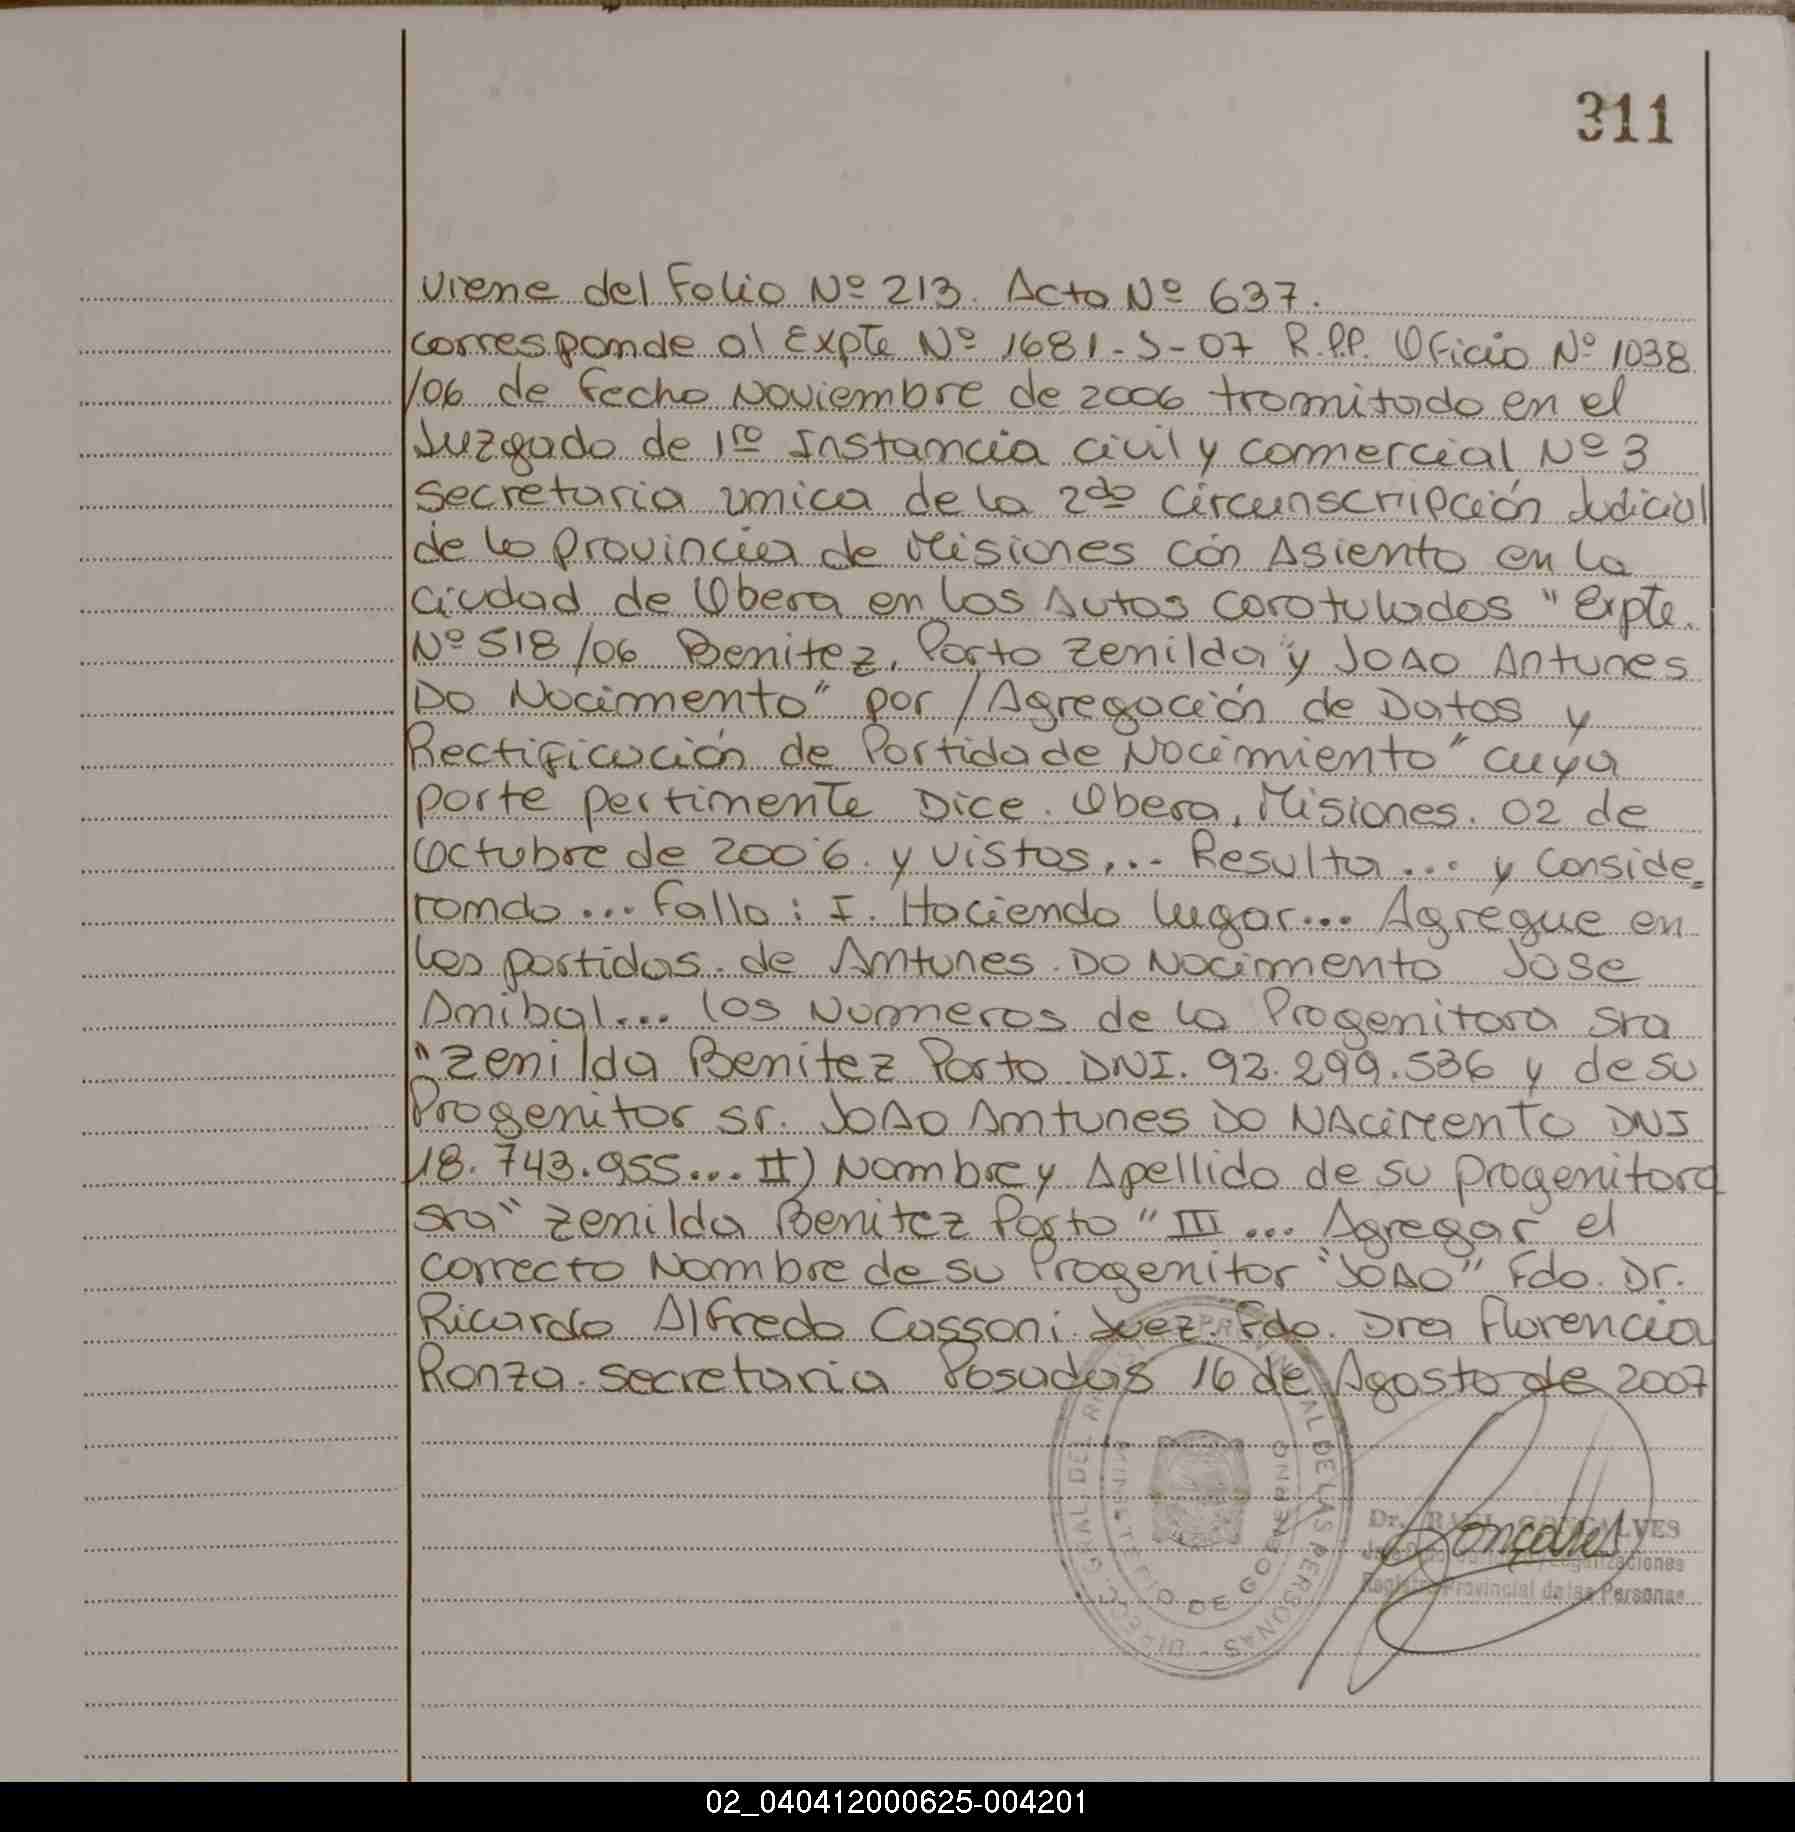 311
Viene del Folio Nº 213. Acta Nº 637.
corresponde al Expte Nº 1681-S-07 R.P.P. Oficio Nº 1038
/06 de fecha Noviembre de 2006 tramitado en el
Juzgado de 1ra Instancia civil y comercial Nº 3
secretaria unica de la 2da Circunscripción Judicial
de la provincia de Misiones cón Asiento en la
ciudad de Obera en los Autos carotulados "Expte.
Nº 518/06 Benitez, Porto Zenilda y JOAO Antunes
DO Nacimento" por /Agregación de Datos y
Rectificación de Partida de Nacimiento" cuya
parte pertinente Dice. Obera, Misiones. 02 de
Octubre de 2006. y vistos,... Resulta... y Conside=
rando... Fallo: I. Haciendo lugar... Agregue en
las partidas. de Antunes. DO Nacimento Jose
Anibal... los Numeros de la Progenitora sra
"Zenilda Benitez Porto DNI. 92.299.536 y de su
Progenitor sr. JOAO Antunes DO NAcimento DNI
18.743.955... II) Nombre y Apellido de su progenitora
sra "Zenilda Benitez Porto" III... Agregar el
correcto Nombre de su Progenitor "JOAO" Fdo. Dr.
Ricardo Alfredo Cassoni. Juez. Fdo. Dra Florencia
Ronza. secretaria Posadas 16 de Agosto de 2007
DIREC. GRAL. DEL REGISTRO PROVINCIAL DE LAS PERSONAS
MINISTERIO DE GOBIERNO
Dr. RAUL GONCALVES
Legalizaciones
Registro Provincial de las Personas
02_040412000625-004201